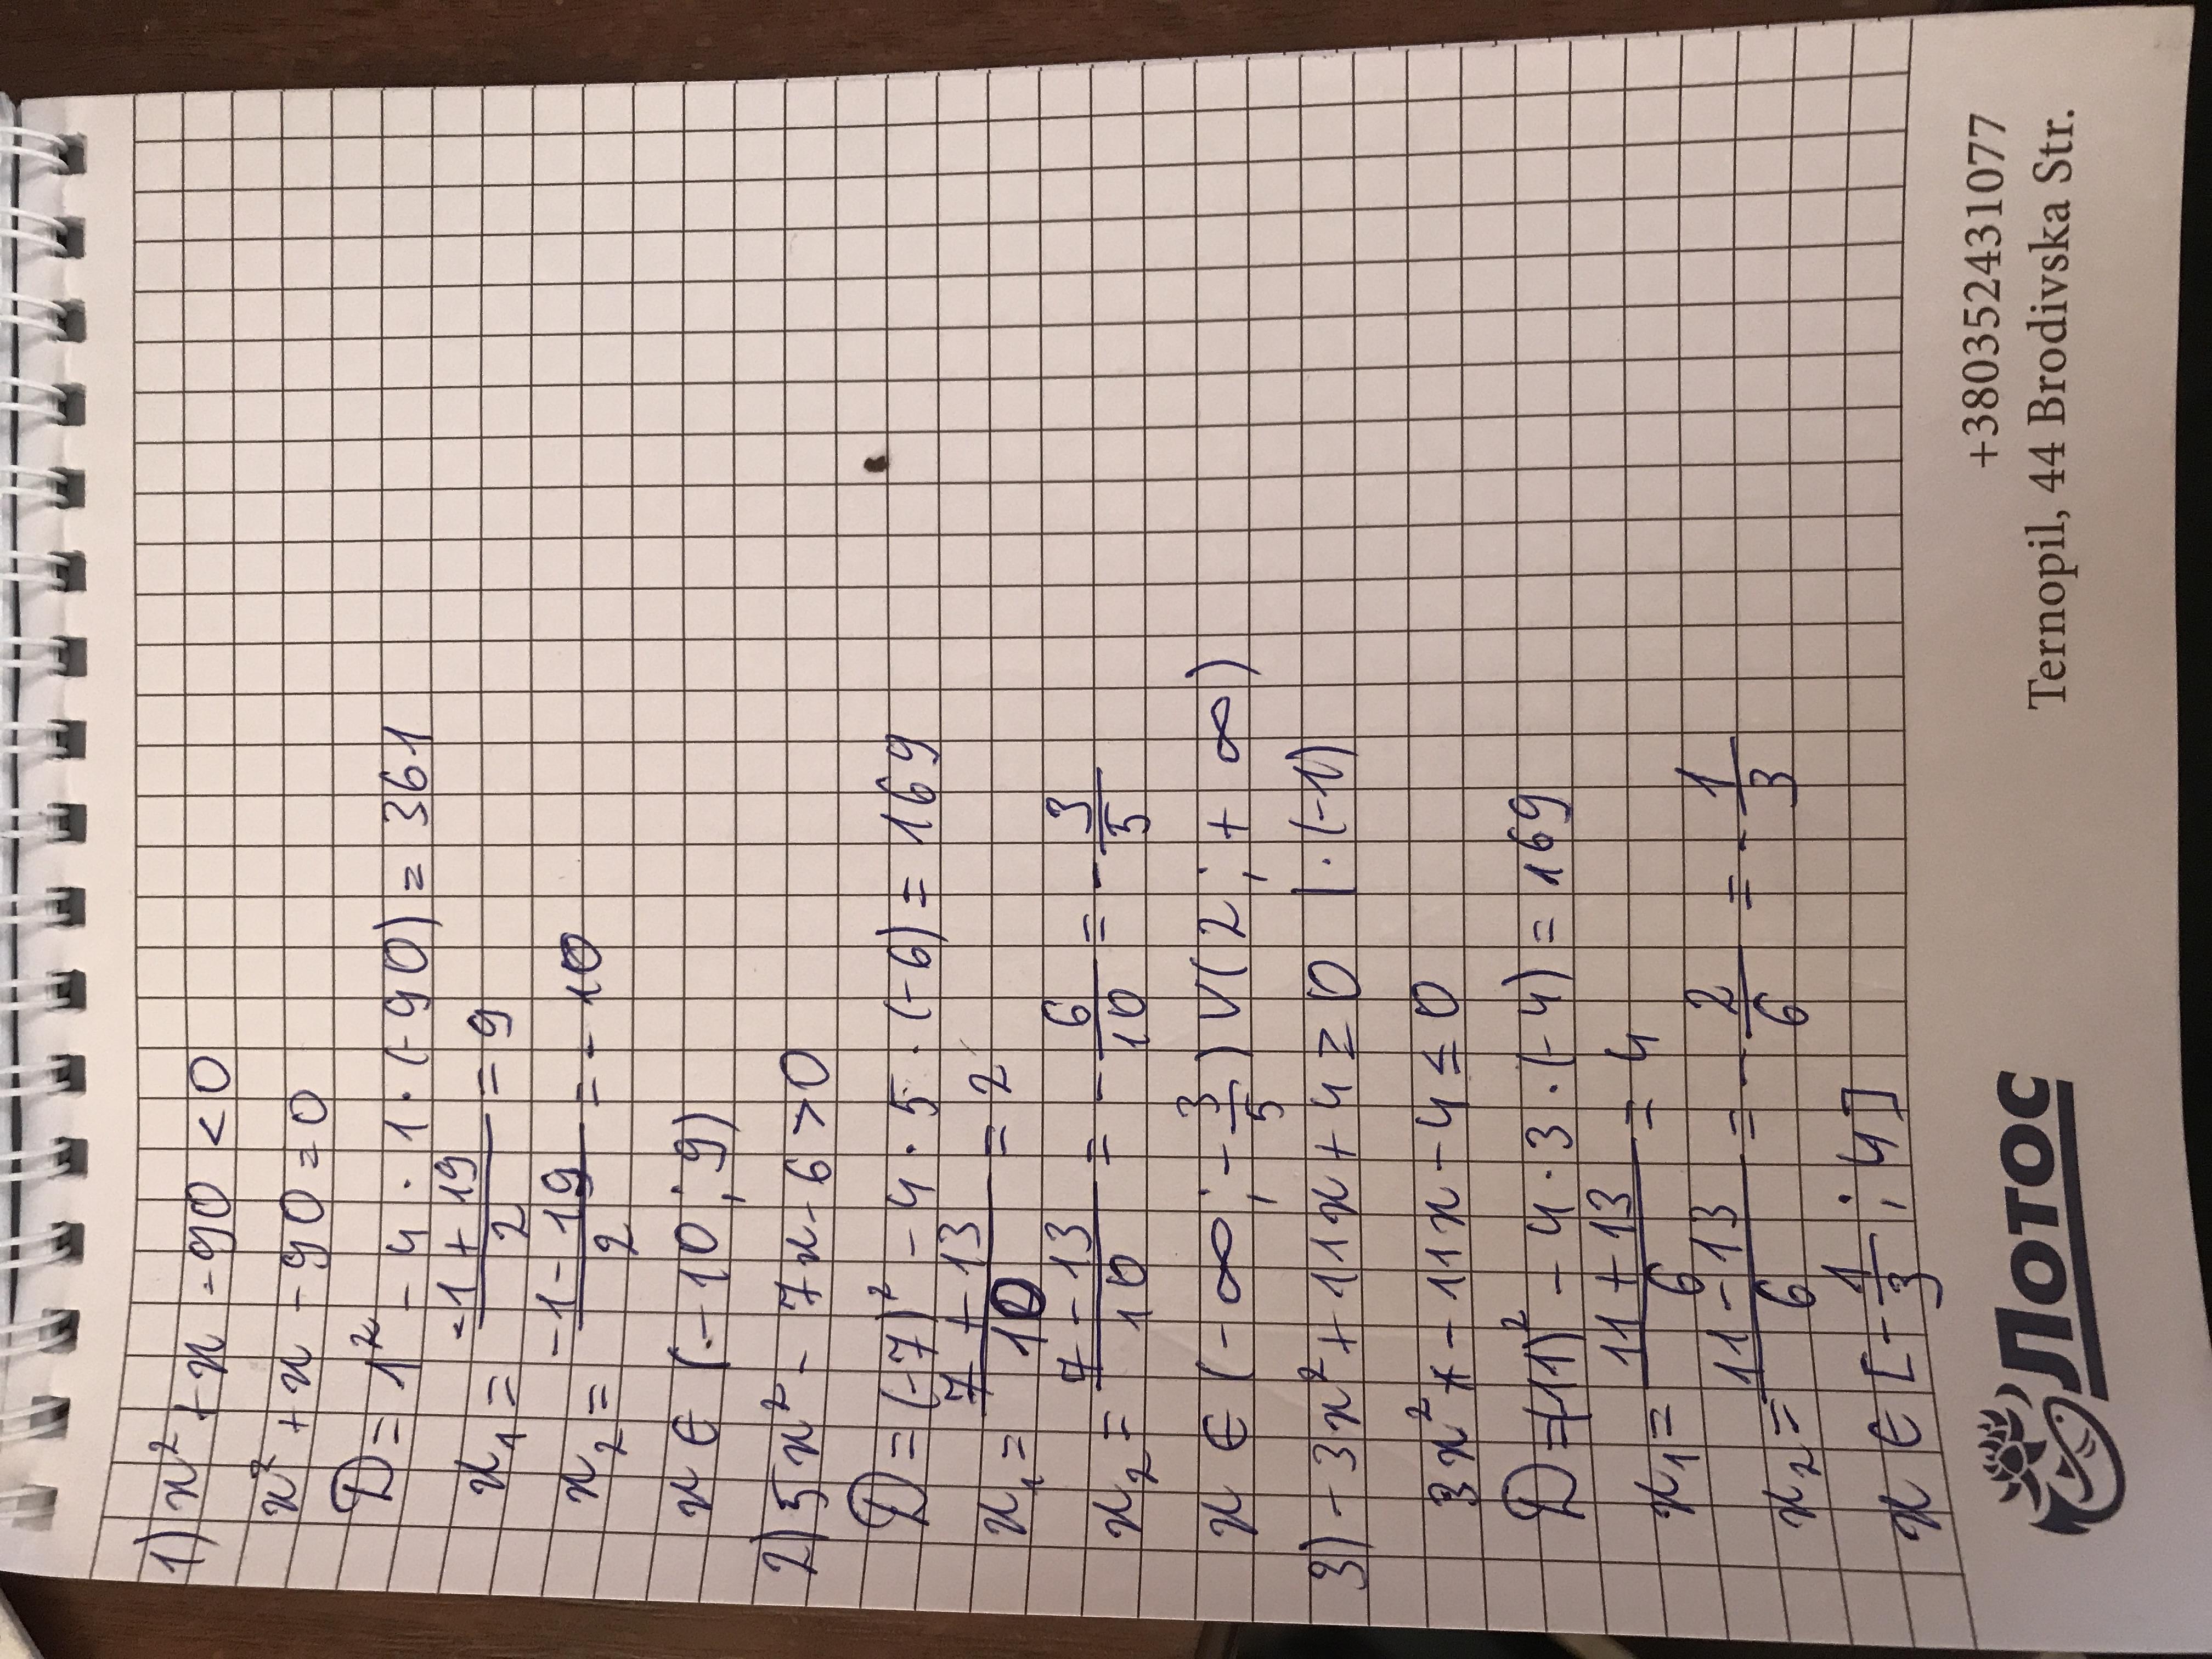 1) x² + x - 90 < 0
x² + x - 90 = 0
D = 1² - 4 · 1 · (-90) = 361
x₁ = (-1 + 19)/2 = 9
x₂ = (-1 - 19)/2 = -10
x ∈ (-10 ; 9)
2) 5x² - 7x - 6 > 0
D = (-7)² - 4 · 5 · (-6) = 169
x₁ = (7 + 13)/10 = 2
x₂ = (7 - 13)/10 = - 6/10 = - 3/5
x ∈ (-∞ ; - 3/5) ∨ (2 ; + ∞)
3) - 3x² + 11x + 4 ≥ 0 | · (-1)
3x² - 11x - 4 ≤ 0
D = (11)² - 4 · 3 · (-4) = 169
x₁ = (11 + 13)/6 = 4
x₂ = (11 - 13)/6 = - 2/6 = - 1/3
x ∈ [- 1/3 ; 4]
Лотос
+380352431077
Ternopil, 44 Brodivska Str.